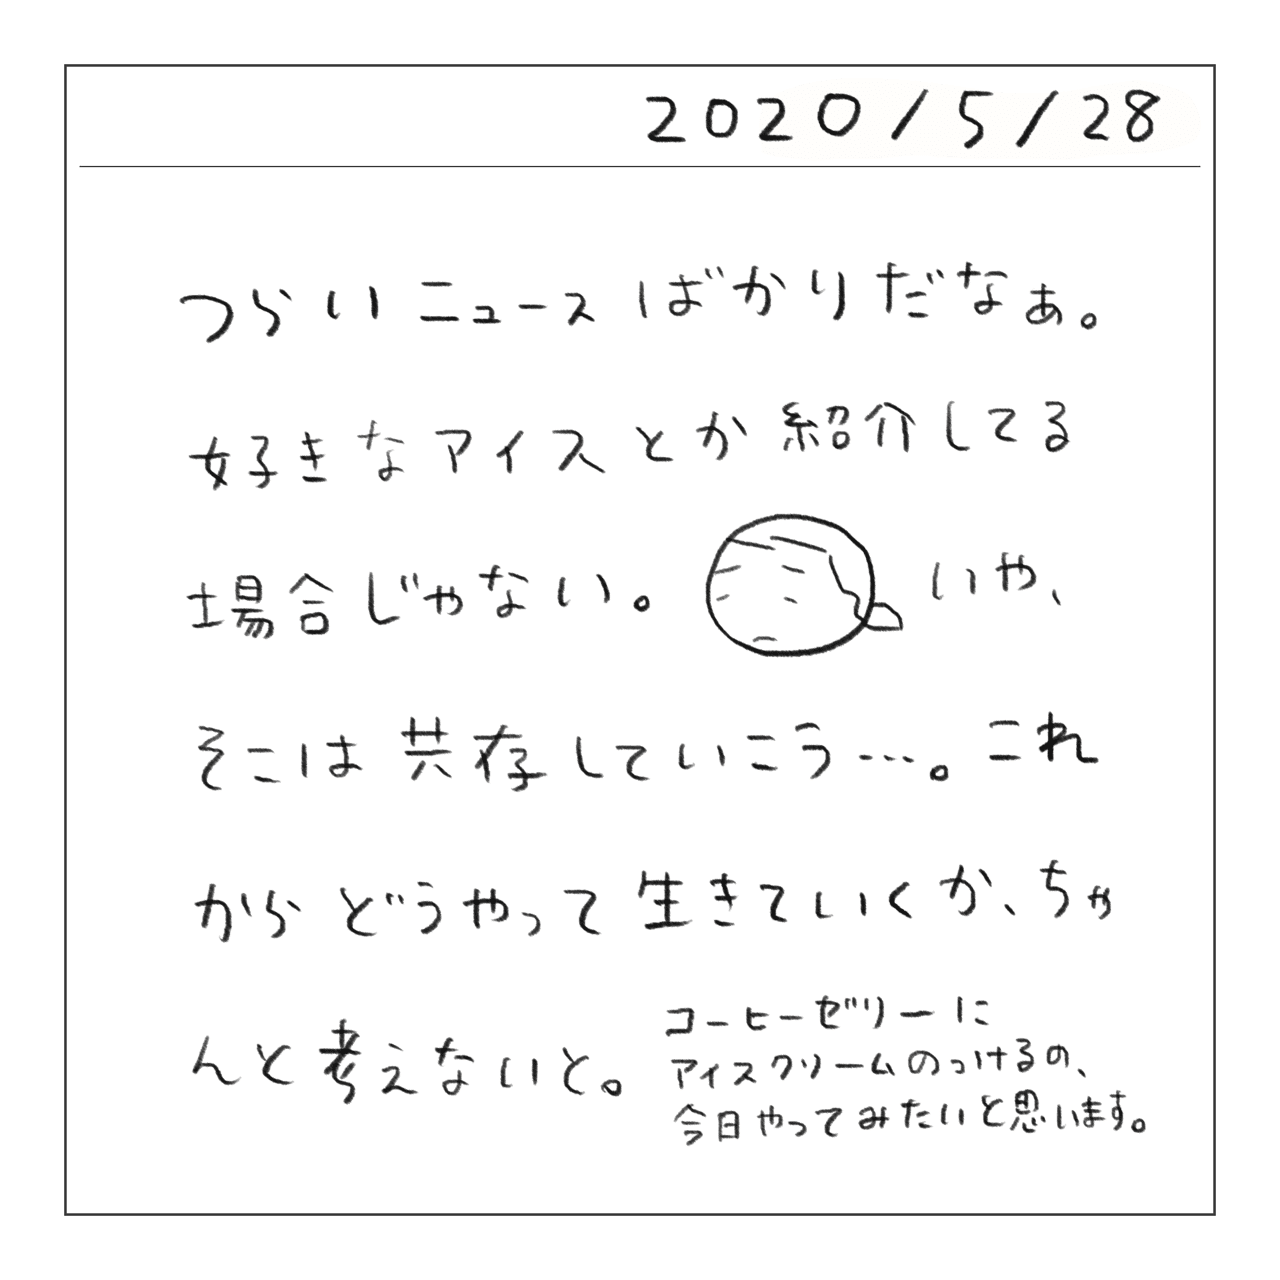 2020/5/28
つらいニュースばかりだなぁ。
好きなアイスとか紹介してる
場合じゃない。 いや、
そこは共存していこう…。これ
からどうやって生きていくか、ちゃ
んと考えないと。
コーヒーゼリーに
アイスクリームのっけるの、
今日やってみたいと思います。